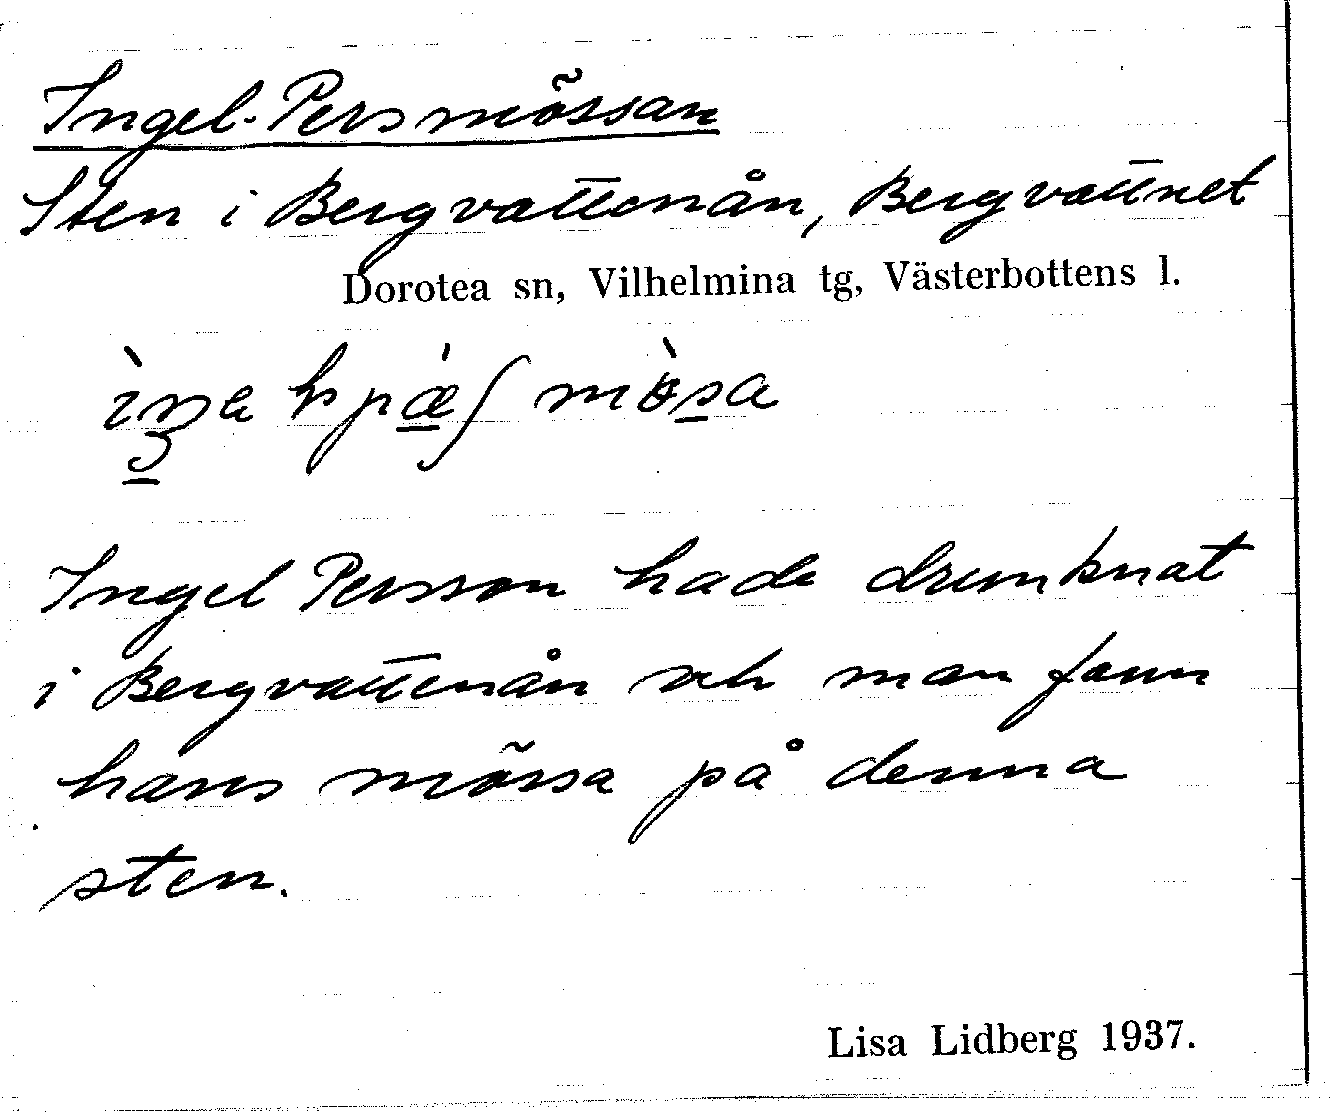 Ingel-Persmössan
Sten i Bergvattenån, Bergvattnet
Dorotea sn, Vilhelmina tg, Västerbottens l.
Ingel Persson hade drunknat
i Bergvattenån och man fann
hans mössa på denna
sten.
Lisa Lidberg 1937.